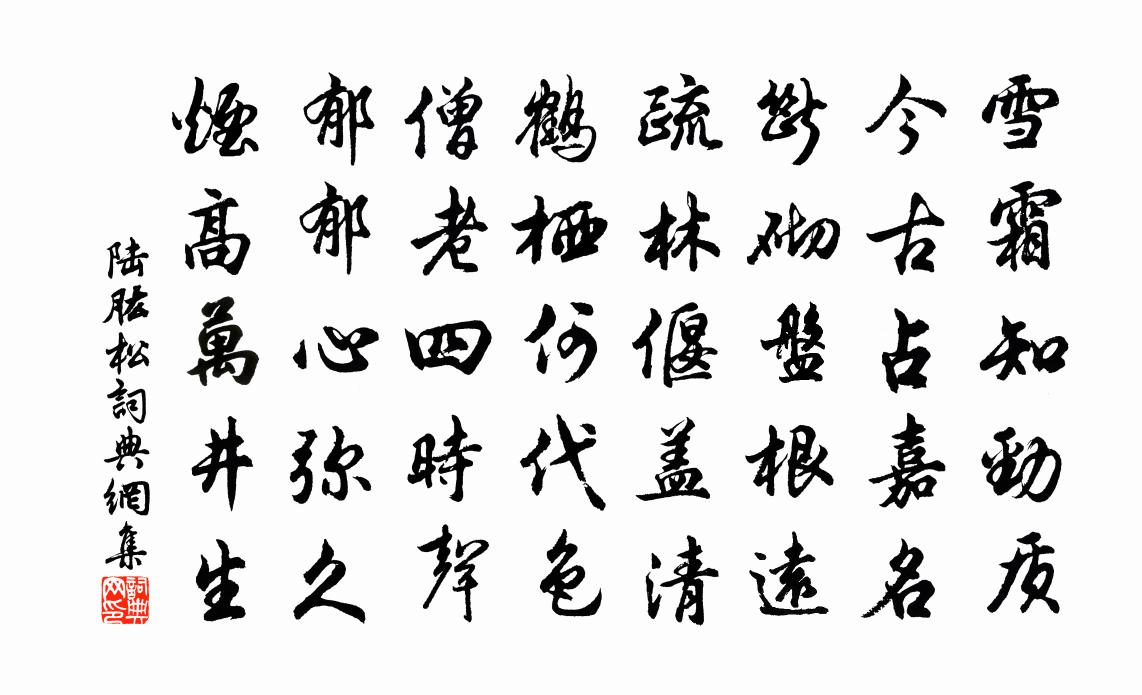 雪霜知勁质
今古占嘉名
斷砌盤根遠
疏林偃盖清
鶴栖何代色
僧老四時聲
郁郁心弥久
煙高萬井生
陸膯松詞典網集